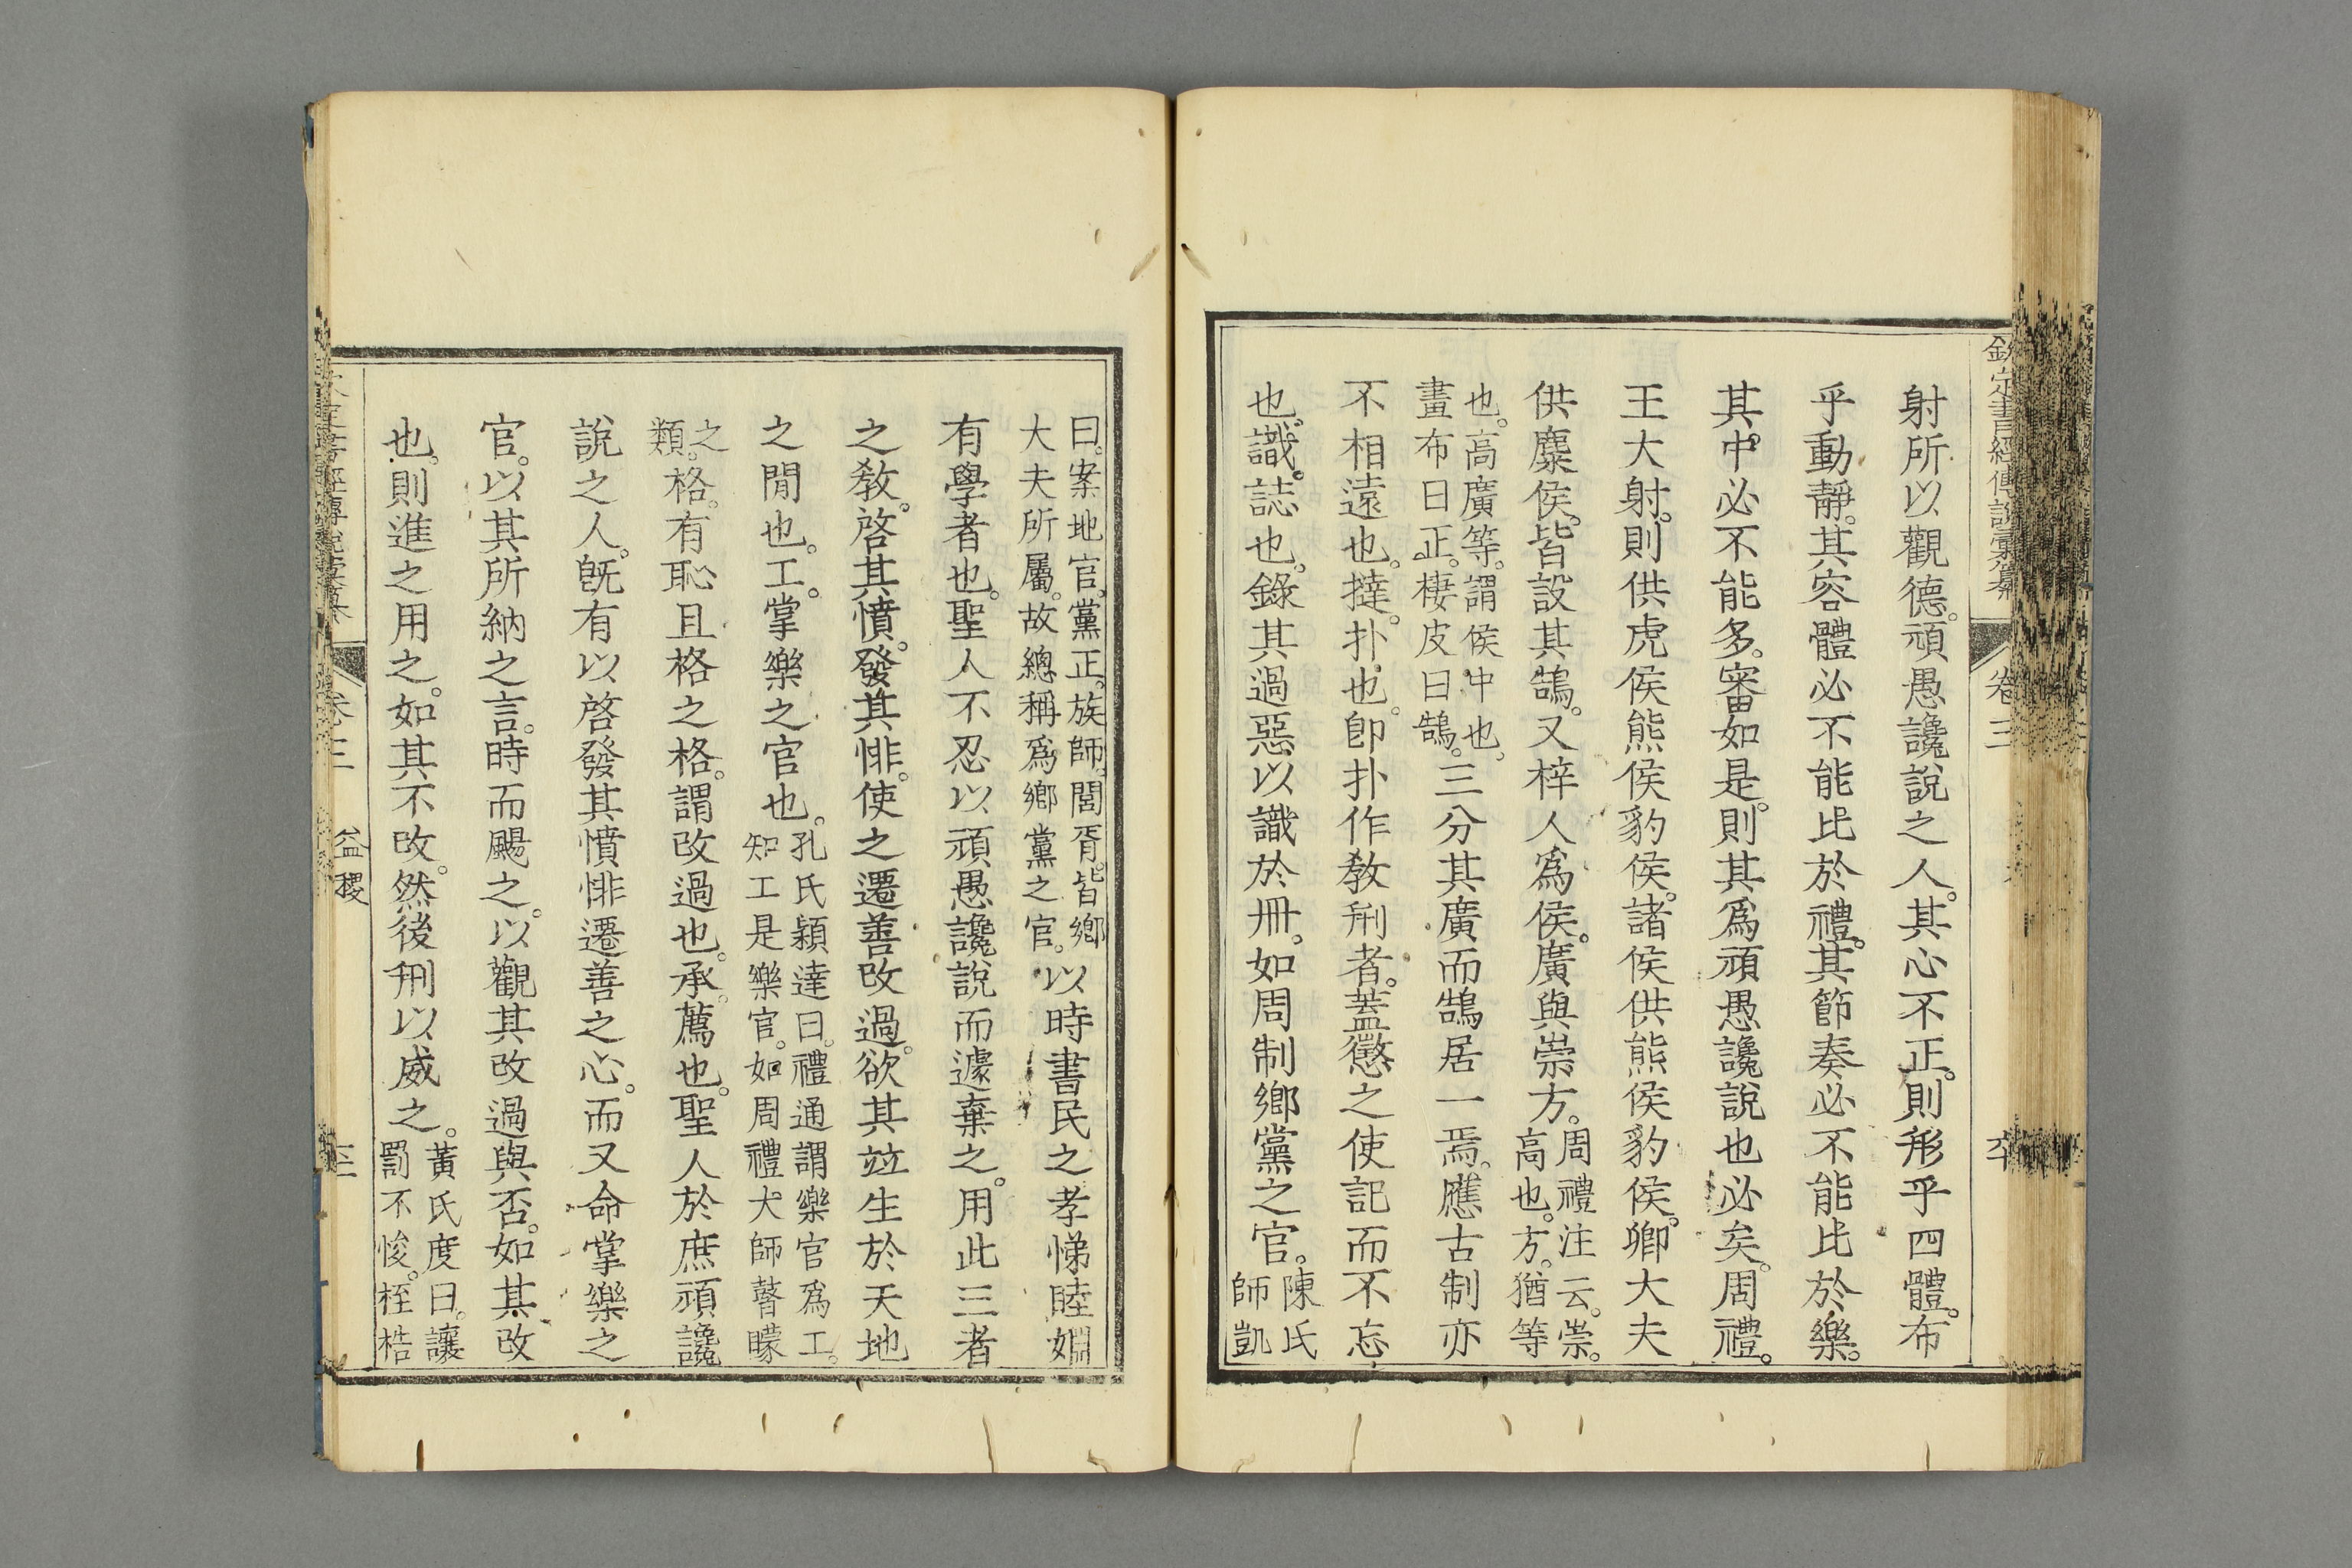 欽定書經傳說彙纂 卷三
射所以觀德。頑愚讒說之人。其心不正。則形乎四體。布
乎動靜。其容體必不能比於禮。其節奏必不能比於樂。
其中必不能多。審如是。則其爲頑愚讒說也必矣。周禮。
王大射。則供虎侯熊侯豹侯。諸侯供熊侯豹侯。卿大夫
供麋侯。皆設其鵠。又梓人爲侯。廣與崇方。周禮注云。崇。高也。方。猶等
也。高廣等。謂侯中也。畫布曰正。棲皮曰鵠。三分其廣而鵠居一焉。應古制亦
不相遠也。撻。扑也。卽扑作教刑者。蓋懲之使記而不忘
也。識。誌也。錄其過惡以識於冊。如周制鄕黨之官。陳氏師凱
曰。案地官。黨正。族師。閭胥。皆鄕大夫所屬。故總稱爲鄕黨之官。以時書民之孝悌睦婣
有學者也。聖人不忍以頑愚讒說而遽棄之。用此三者
之教。啓其憤。發其悱。使之遷善改過。欲其竝生於天地
之閒也。工。掌樂之官也。孔氏穎達曰。禮通謂樂官爲工。知工是樂官。如周禮大師瞽矇
之類。格。有恥且格之格。謂改過也。承。薦也。聖人於庶頑讒
說之人。旣有以啓發其憤悱遷善之心。而又命掌樂之
官。以其所納之言。時而颺之。以觀其改過與否。如其改
也。則進之用之。如其不改。然後刑以威之。黃氏度曰。讓罰不悛。桎梏
卷三 益稷